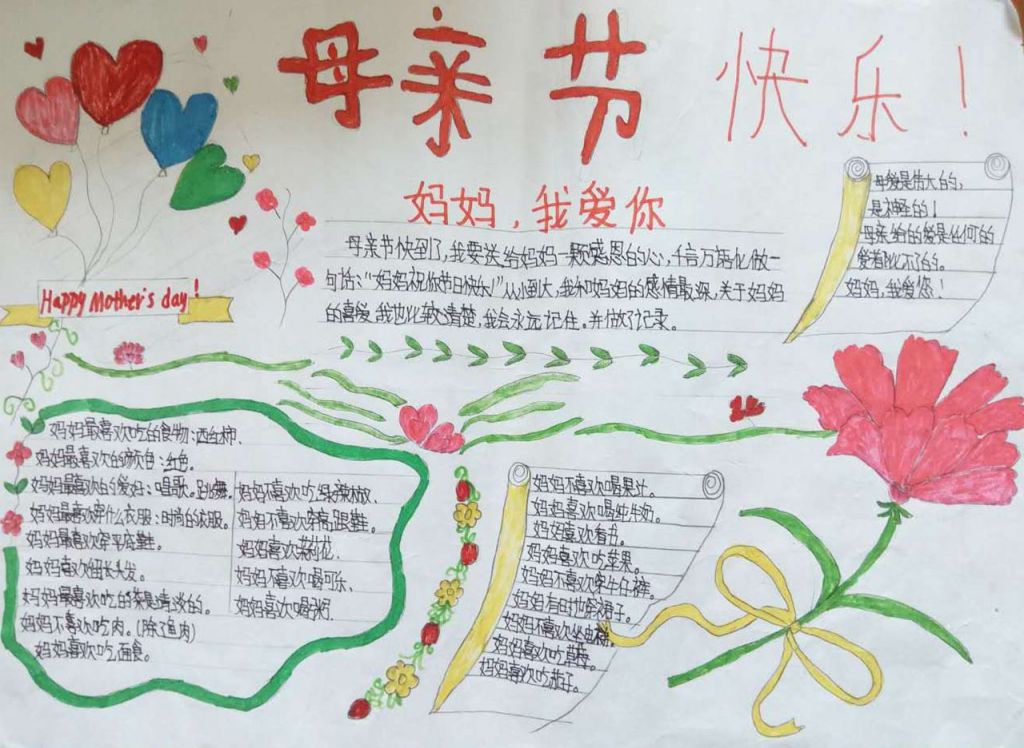 母亲节快乐！
妈妈，我爱你
母亲节快到了，我要送给妈妈一颗感恩的心，千言万语化做一
句话："妈妈祝你节日快乐！"从小到大，我和妈妈的感情最深，关于妈妈
的喜爱，我也比较清楚，我会永远记住。并做了记录。
母爱是伟大的，
是神圣的！
母亲给的爱是任何的
爱都比不了的。
妈妈，我爱您！
Happy Mother's day！
妈妈最喜欢吃的食物：西红柿、
妈妈最喜欢的颜色：红色。
妈妈最喜欢的爱好：唱歌。跳舞。
妈妈最喜欢穿什么衣服：时尚的衣服。
妈妈最喜欢穿平底鞋。
妈妈喜欢细长头发。
妈妈最喜欢吃的菜是清淡的。
妈妈不喜欢吃肉。（除了鱼肉）
妈妈喜欢吃面食。
妈妈不喜欢吃绿辣椒、
妈妈不喜欢穿高跟鞋。
妈妈喜欢茉莉花、
妈妈不喜欢喝可乐、
妈妈喜欢喝粥
妈妈不喜欢喝果汁。
妈妈喜欢喝纯牛奶。
妈妈喜欢看书。
妈妈喜欢吃苹果。
妈妈不喜欢穿牛仔裤。
妈妈有时也会穿裙子。
妈妈不喜欢坐电梯。
妈妈喜欢吃草莓。
妈妈喜欢吃茄子。